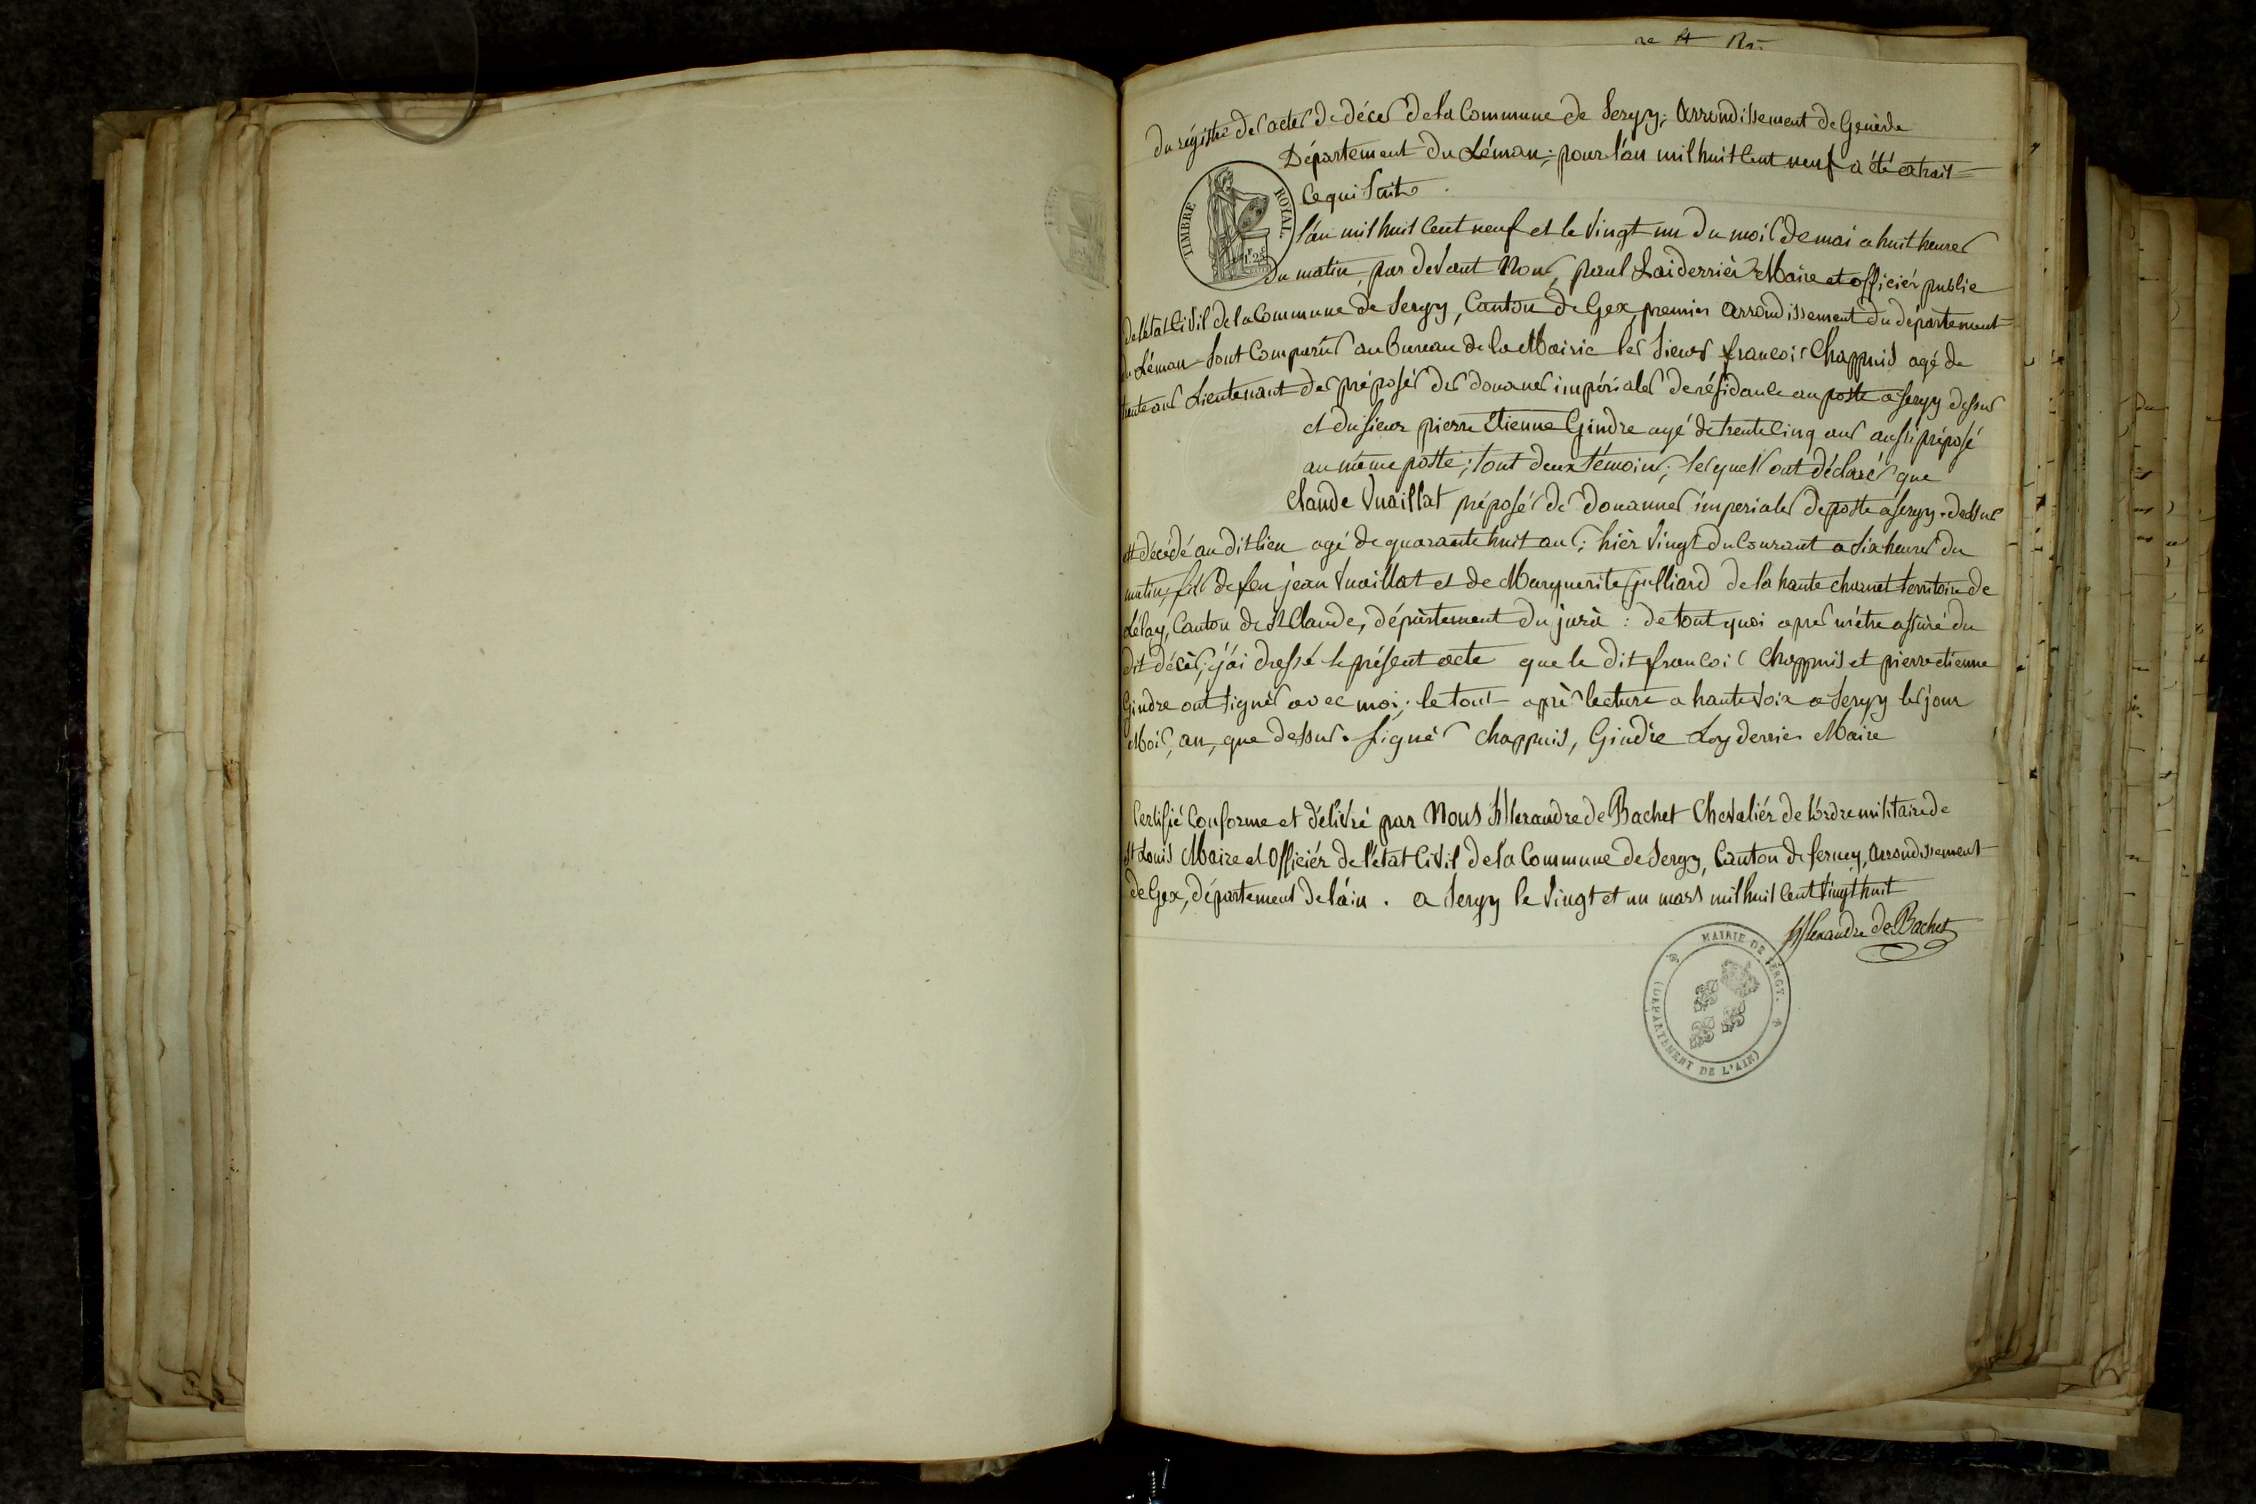 du régistre des actes de décès de la Commune de Sergy; arrondissement de Genève
Département du Léman; pour l'an mil huit cent neuf a été extrait
ce qui suit.
TIMBRE ROYAL
1F 25
l'an mil huit cent neuf et le vingt un du mois de mai a huit heures
du matin, par devant Nous, paul Laiderrièr Maire et officiér public
de l'état Civil de la Commune de Sergy, Canton de Gex, premier arrondissement du département
du Léman Sont Comparus au bureau de la Mairie les Sieurs françois Chappuis agé de
trente ans Lieutenant des préposés des douanes impériales de résidance au poste a Sergy dessus
et du sieur pierre Etienne Gindre agé de trente Cinq ans aussi préposé
au même poste; tout deux témoins; lesquels ont déclarés que
Claude Vuaillat préposés de douannes imperiales de poste a Sergy-dessus
est décédé au dit lieu agé de quarante huit ans; hièr vingt du Courant a six heures du
matin, fils de feu jean Vuaillat et de Marguerite Julliard de la haute charnet territoire de
Lelay, Canton de St Claude, département du jura : de tout quoi apres m'étre assuré du
dit décès; j'ai dressé le présent acte que le dit françois Chappuis et pierre etienne
Gindre ont signés avec moi; le tout après lecture a haute voix a Sergy les jour
Mois, an, que dessus. Signés Chappuis, Gindre Layderrier Maire
Certifié Conforme et délivré par Nous Alexandre de Bachet Chevaliér de l'ordre militaire de
St Louis Maire et Officiér de l'état Civil de la Commune de Sergy, Canton de ferney, arrondissement
de Gex, département de l'ain. a Sergy le vingt et un mars mil huit cent vingt huit
Alexandre de Bachet
MAIRIE DE SERGY.
(DEPARTEMENT DE L'AIN)